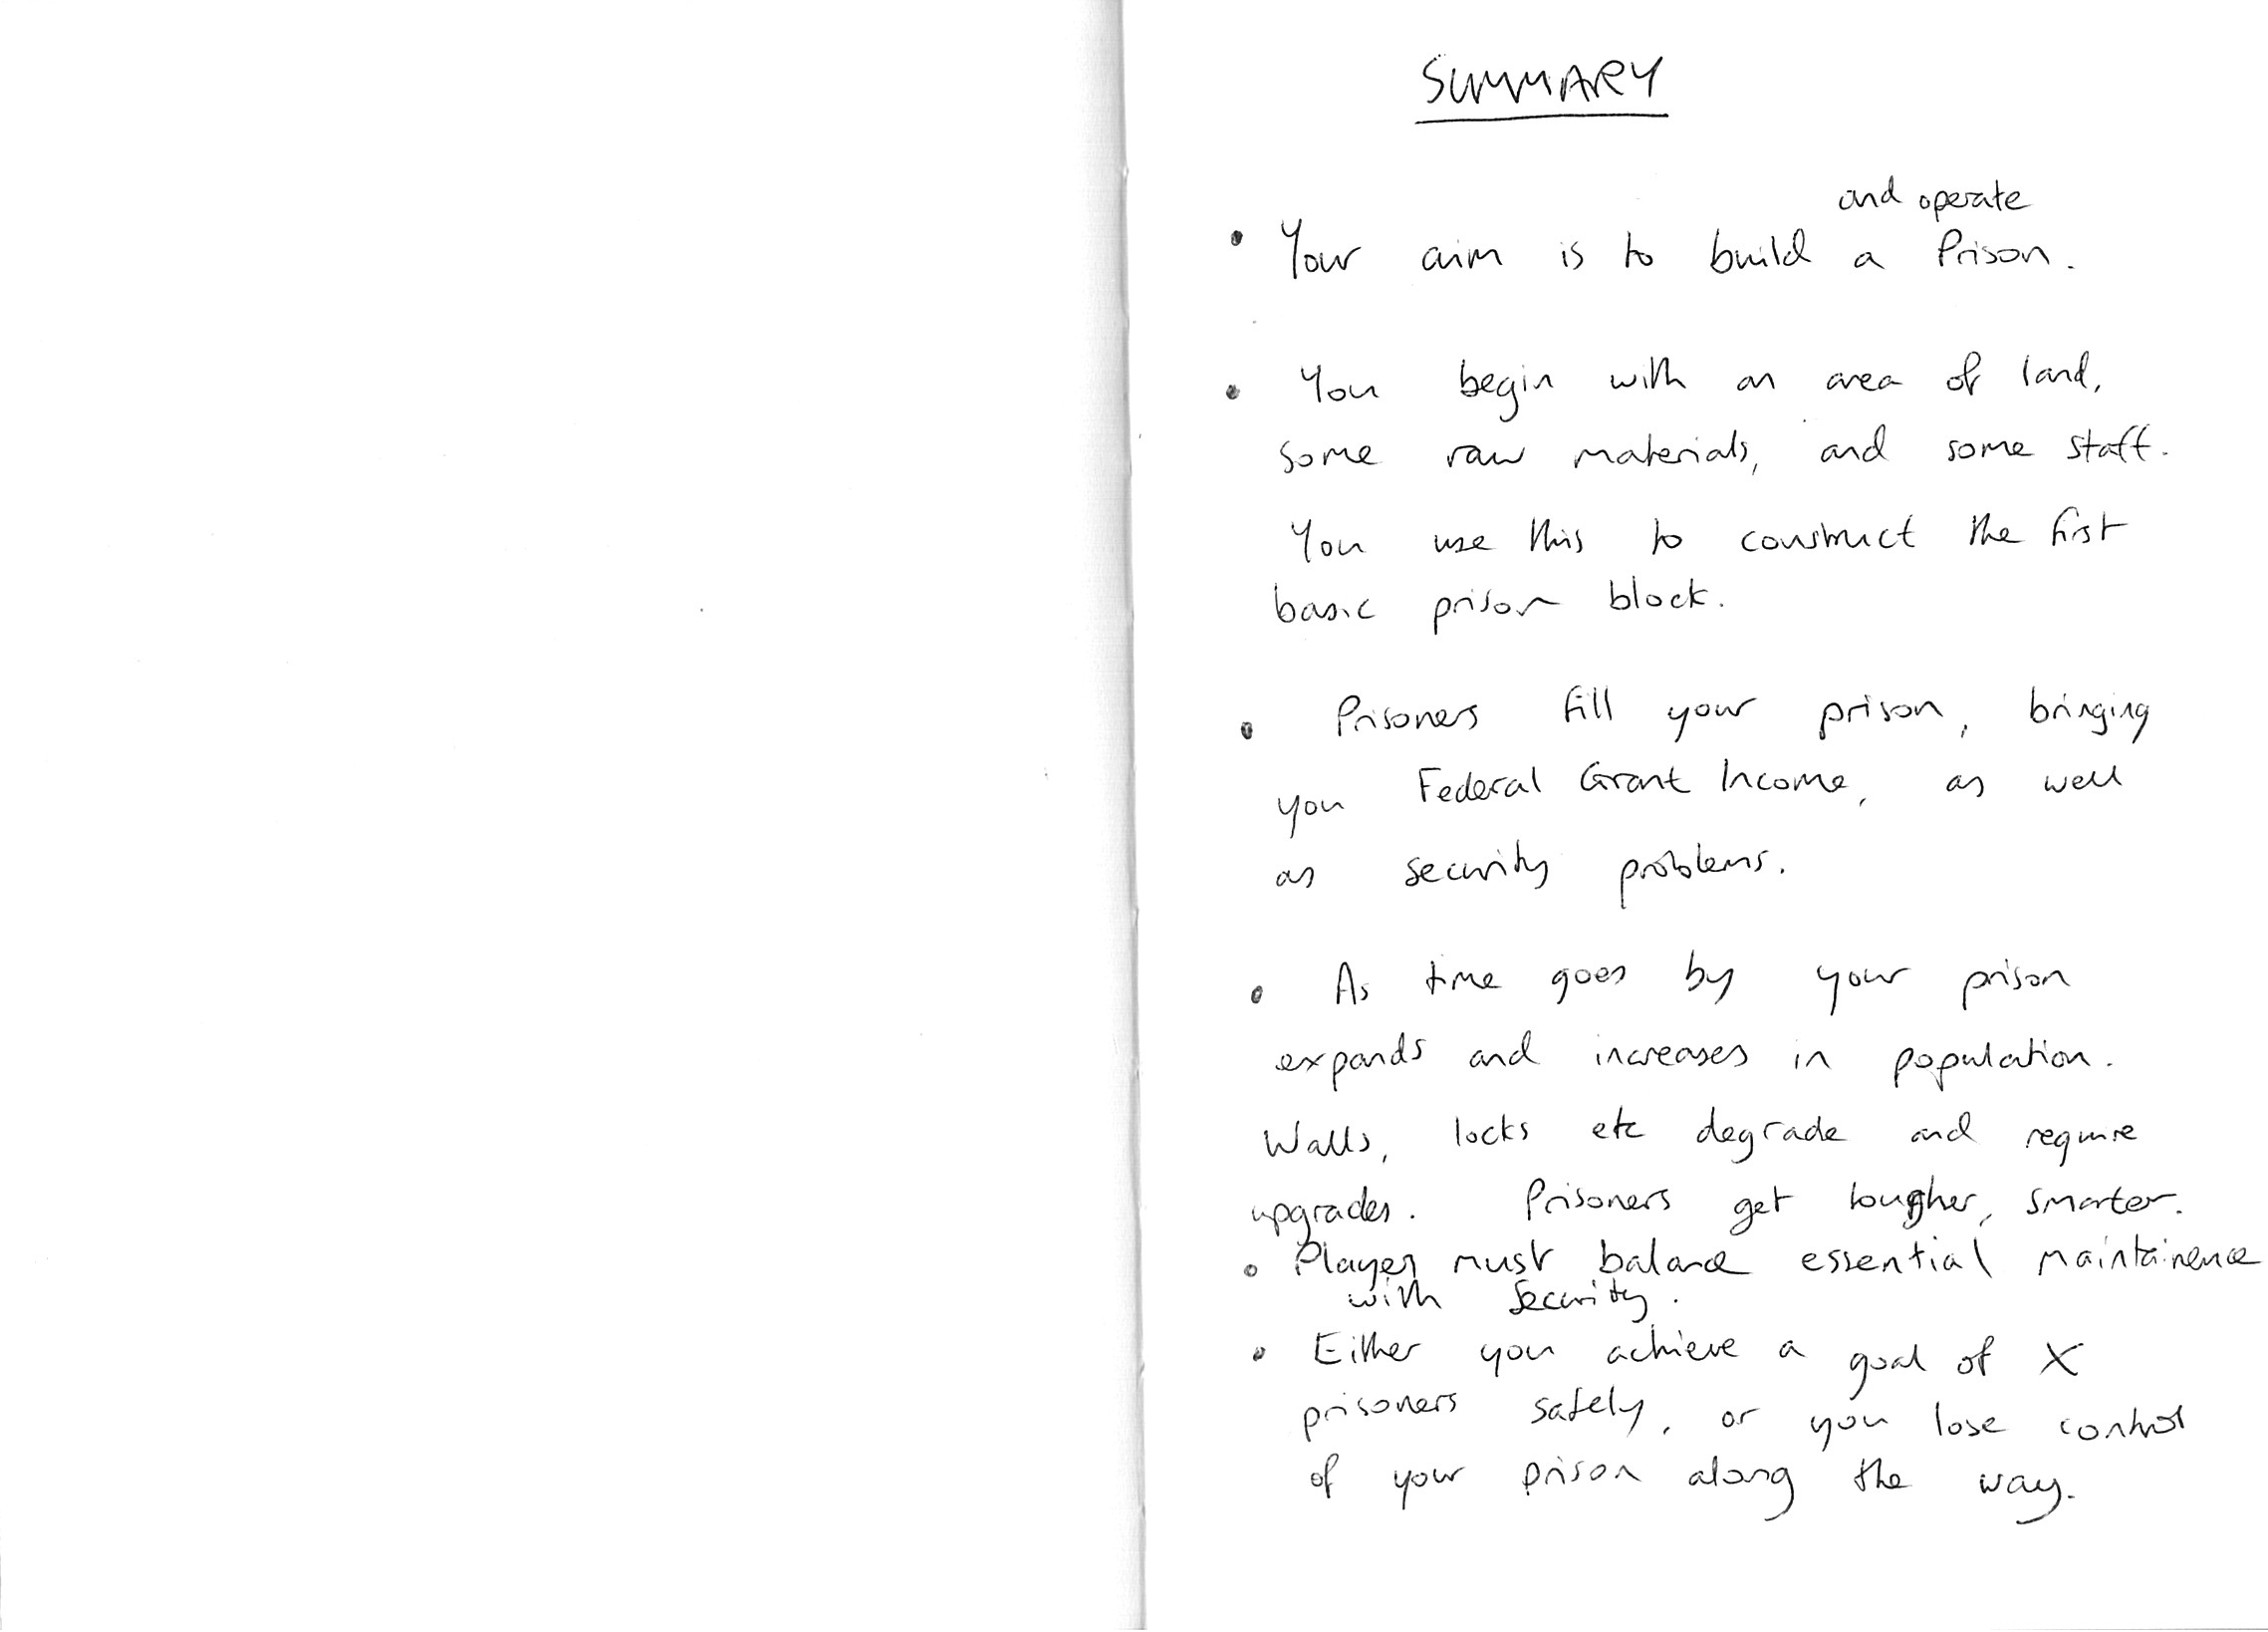 SUMMARY
and operate
• Your aim is to build a Prison.
• You begin with an area of land,
some raw materials, and some staff.
You use this to construct the first
basic prison block.
• Prisoners fill your prison, bringing
you Federal Grant Income, as well
as security problems.
• As time goes by your prison
expands and increases in population.
Walls, locks etc degrade and require
upgrades. Prisoners get tougher, smarter.
• Player must balance essential maintainence
with security.
• Either you achieve a goal of X
prisoners safely, or you lose control
of your prison along the way.